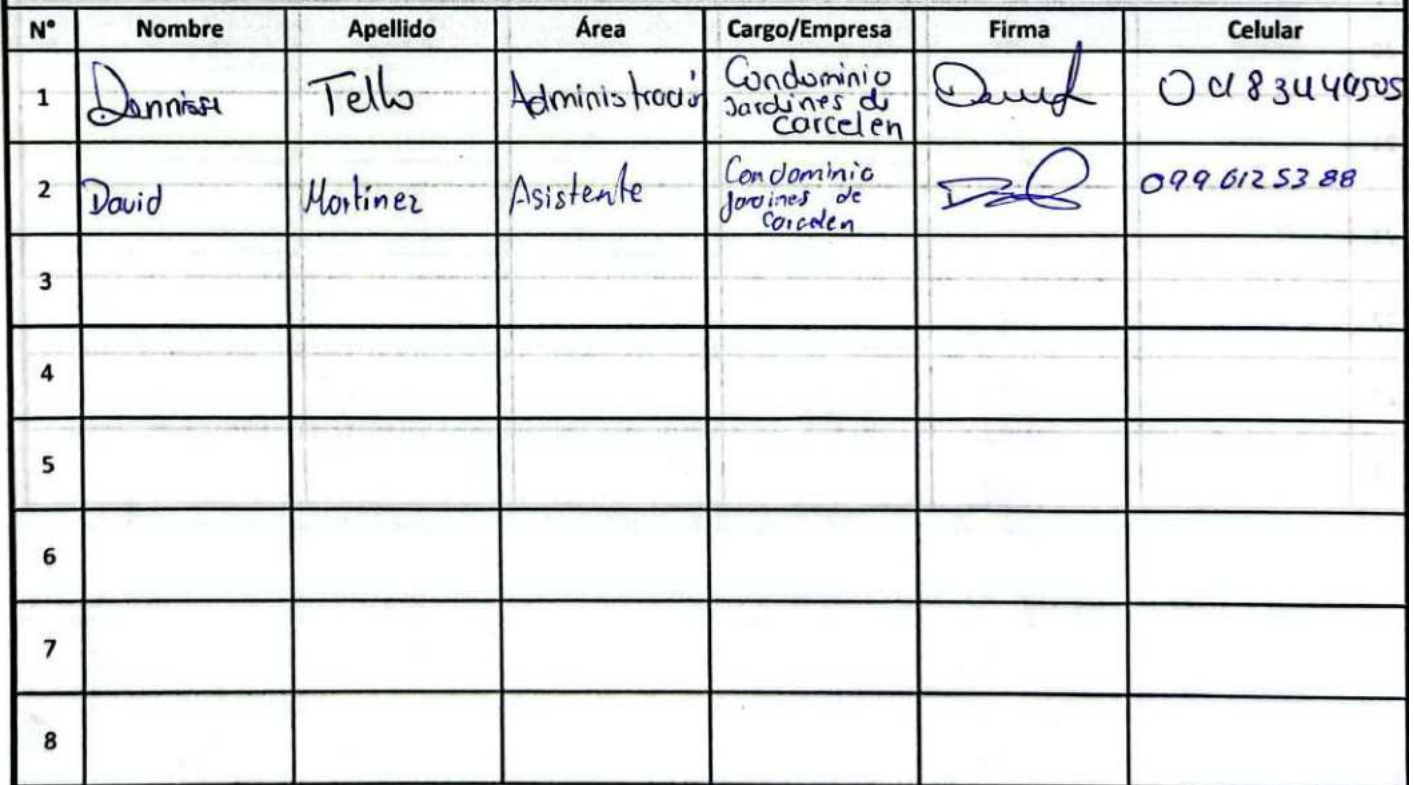 N° Nombre Apellido Área Cargo/Empresa Firma Celular
1 Dennisse Tello Administración Condominio
Jardines de
Carcelen
2 David Martinez Asistente Condominio
Jardines de
Carcelen
0996125388
3
4
5
6
7
8